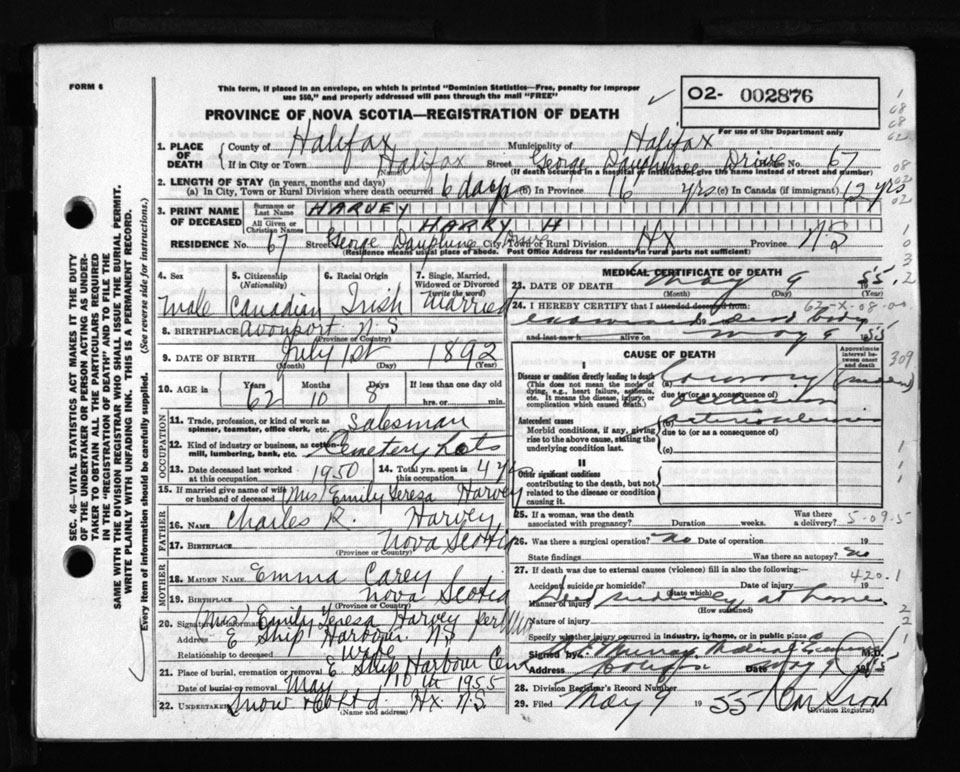 FORM 6
This form, if placed in an envelope, on which is printed "Dominion Statistics—Free, penalty for improper
use $50," and properly addressed will pass through the mail "FREE"
PROVINCE OF NOVA SCOTIA—REGISTRATION OF DEATH
O2- 002876
For use of the Department only
1. PLACE OF DEATH
County of Halifax Municipality of Halifax
If in City or Town Halifax Street George Dauphinee Drive No. 67
(If death occurred in a hospital or institution, give the name instead of street and number)
2. LENGTH OF STAY (in years, months and days)
(a) In City, Town or Rural Division where death occurred 6 days (b) In Province 16 yrs (c) In Canada (if immigrant) 62 yrs
3. PRINT NAME OF DECEASED
Surname or Last Name HARVEY
All Given or Christian Names HARRY H
RESIDENCE No. 67 Street George Dauphine Drive City, Town or Rural Division Hx Province N S
(Residence means usual place of abode. Post Office Address for residents in rural parts not sufficient)
4. Sex 5. Citizenship (Nationality) 6. Racial Origin 7. Single, Married, Widowed or Divorced (write the word)
Male Canadian Irish Married
8. BIRTHPLACE Avonport N S
(Province or Country)
9. DATE OF BIRTH July 1st 1892
(Month) (Day) (Year)
10. AGE Years 62 Months 10 Days 8 If less than one day old
hrs. or min.
OCCUPATION
11. Trade, profession, or kind of work as spinner, teamster, office clerk, etc. Salesman
12. Kind of industry or business, as cotton mill, lumbering, bank, etc. Cemetery Lots
13. Date deceased last worked at this occupation 1950 14. Total yrs. spent in this occupation 4 yrs
15. If married give name of wife or husband of deceased (Mrs) Emily Teresa Harvey
FATHER
16. NAME Charles R. Harvey
17. BIRTHPLACE Nova Scotia
(Province or Country)
MOTHER
18. MAIDEN NAME Emma Carey
19. BIRTHPLACE Nova Scotia
(Province or Country)
20. Signature of informant (Mrs) Emily Teresa Harvey per
Address E Ship Harbour N S
Relationship to deceased Wife
21. Place of burial, cremation or removal E Ship Harbour Cem
Date of burial or removal May 10th 1955
22. UNDERTAKER Snow & Co Ltd Hx N.S.
(Name and address)
MEDICAL CERTIFICATE OF DEATH
23. DATE OF DEATH May 9 1955
(Month) (Day) (Year)
24. I HEREBY CERTIFY that I attended deceased from:
dead body
and last saw h alive on May 9 1955
CAUSE OF DEATH
Approximate interval between onset and death
I
Disease or condition directly leading to death
(This does not mean the mode of dying, e.g., heart failure, asthenia, etc. It means the disease, injury, or complication which caused death.)
(a) Coronary (sudden)
due to (or as a consequence of)
Antecedent causes
Morbid conditions, if any, giving rise to the above cause, stating the underlying condition last.
(b) arteriosclerosis
due to (or as a consequence of)
(c)
II
Other significant conditions
contributing to the death, but not related to the disease or condition causing it.
25. If a woman, was the death associated with pregnancy? Duration weeks. Was there a delivery?
26. Was there a surgical operation? No Date of operation 19
State findings Was there an autopsy? No
27. If death was due to external causes (violence) fill in also the following:
Accident, suicide or homicide? Date of injury 19
(State which)
Manner of injury Died suddenly at home
(How sustained)
Nature of injury
Specify whether injury occurred in industry, in home, or in public place
Signed by Murray Medical Examiner M.D.
Address Date May 9 1955
28. Division Registrar's Record Number
29. Filed May 9 19 55
(Division Registrar)
309
5-09-5
420.1
SEC. 46- VITAL STATISTICS ACT MAKES IT THE DUTY
OF THE UNDERTAKER OR PERSON ACTING AS UNDER-
TAKER TO OBTAIN ALL THE PARTICULARS REQUIRED
IN THE "REGISTRATION OF DEATH" AND TO FILE THE
SAME WITH THE DIVISION REGISTRAR WHO SHALL ISSUE THE BURIAL PERMIT.
WRITE PLAINLY WITH UNFADING INK. THIS IS A PERMANENT RECORD.
Every item of information should be carefully supplied. (See reverse side for instructions.)